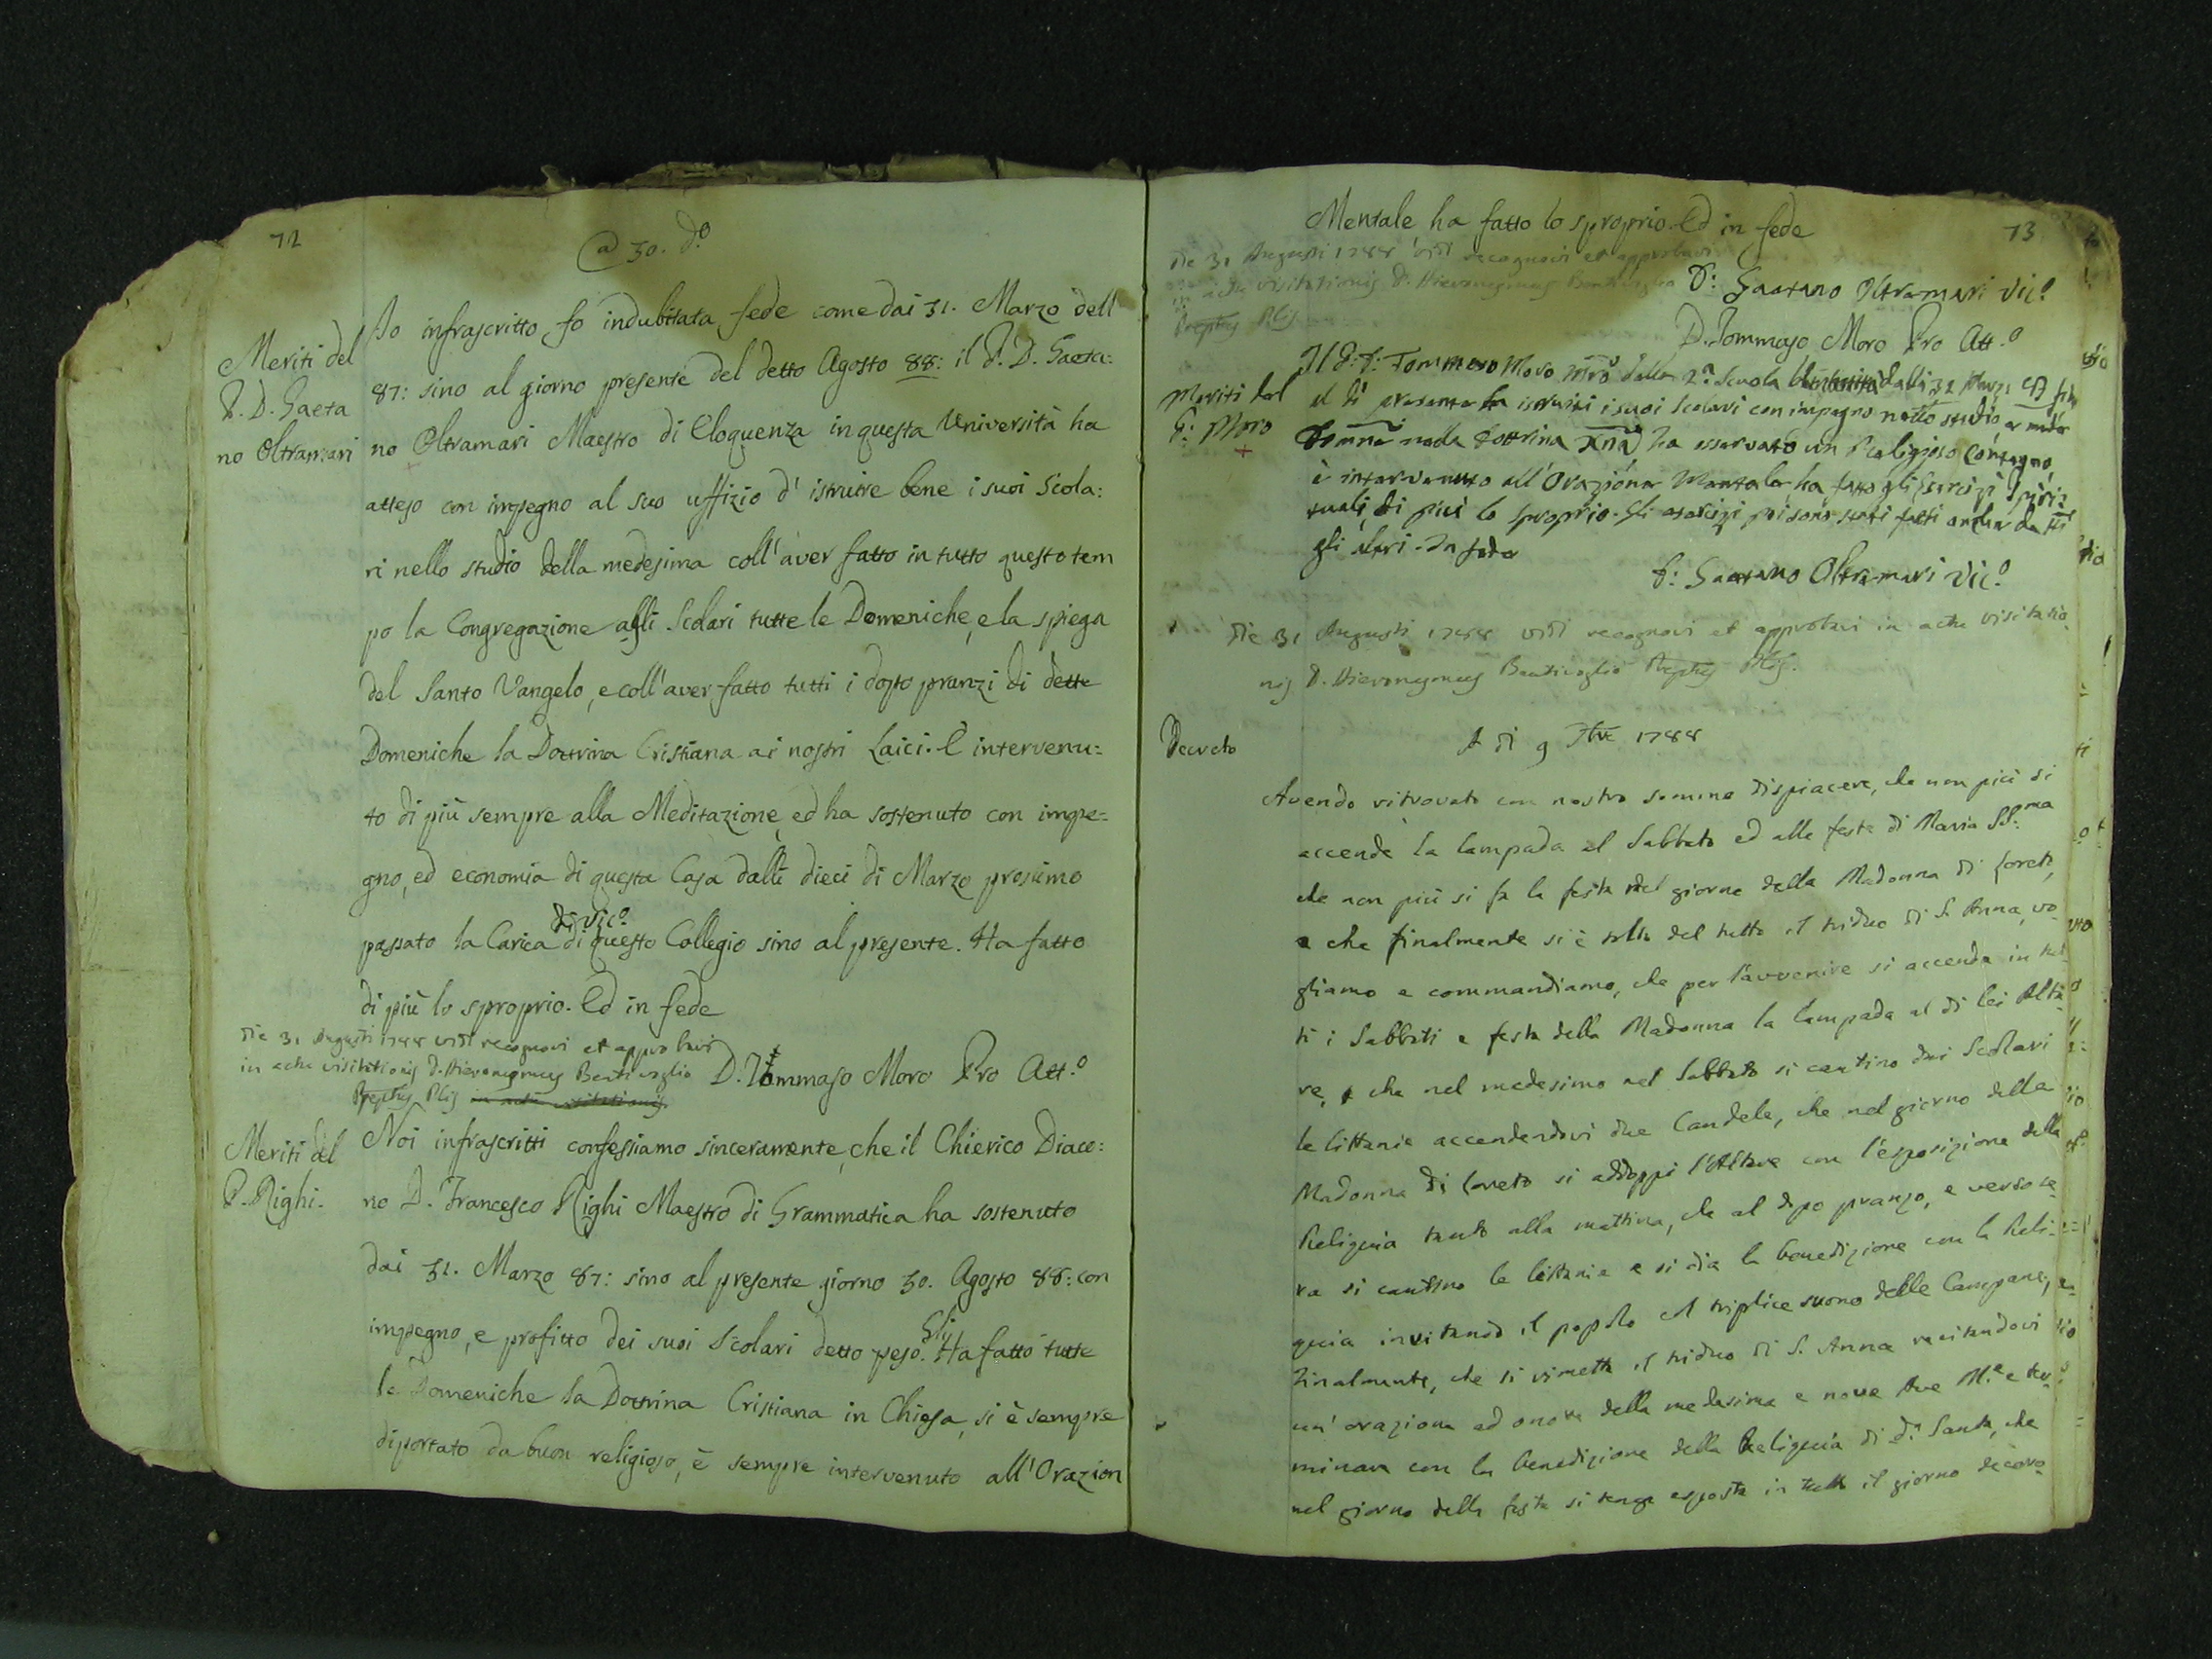 72
@ 30. d.o
Io infrascritto fo indubitata fede come dai 31. Marzo dell
Meriti del
P. D. Gaeta
no Oltramari
87: sino al giorno presente del detto Agosto 88: il P. D. Gaeta:
no Oltramari Maestro di Eloquenza in questa Università ha
atteso con impegno al suo uffizio d' istruire bene i suoi Scola:
ri nello studio della medesima coll' aver fatto in tutto questo tem
po la Congregazione agli Scolari tutte le Domeniche, e la spiega
del Santo Vangelo, e coll' aver fatto tutti i dopo pranzi di dette
Domeniche la Dottrina Cristiana ai nostri Laici. È intervenu:
to di più sempre alla Meditazione, ed ha sostenuto con impe=
gno, ed economia di questa Casa dalli dieci di Marzo prosimo
di Vic.o
passato la Carica di questo Collegio sino al presente. Ha fatto
di più lo sproprio. Ed in fede
die 31 Augusti 1788 vidi recognovi et approbavi
in actu visitationis D. Hieronymus Bentivoglio
Preptus Plis in actu visitationis
D. Tommaso Moro Pro Att.o
Meriti del
P. Righi.
Noi infrascritti confessiamo sinceramente, che il Chierico Diaco:
no D. Francesco Righi Maestro di Grammatica ha sostenuto
dai 31. Marzo 87: sino al presente giorno 30. Agosto 88: con
impegno, e profitto dei suoi Scolari detto peso. Egli Ha fatto tutte
le Domeniche la Dottrina Cristiana in Chiesa, si è sempre
diportato da buon religioso, è sempre intervenuto all' Orazion
73
Mentale ha fatto lo sproprio. Ed in fede
die 31 Augusti 1788 vidi recognovi et approbavi
in actu visitationis D. Hieronymus Bentivoglio
Preptus Plis
D: Gaetano Oltramari Vic.o
D. Tommaso Moro Pro Att.o
Meriti del
P: Moro
Il P: D: Tommaso Moro Mro della 2.a Scuola dalli 31 Marzo 87 fino
al dì presente ha istruiti i suoi Scolari con impegno nello studio e
nella Dottrina Xna ha osservato un Religioso Contegno,
è intervenuto all' Orazione Mentale ha fatto gli Esercizi Spiri:
tuali, di più lo sproprio. Gli esercizi poi sono stati fatti anche da tutti
gli altri. In fede
D: Gaetano Oltramari Vic.o
die 31 Augusti 1788 vidi recognovi et approbavi in actu visitatio
nis D. Hieronymus Bentivoglio Preptus Plis.
Decreto
A di 9 7bre 1788
Avendo ritrovato con nostro sommo dispiacere, che non più si
accende la lampada al Sabbato ed alle feste di Maria SS:ma
che non più si fa la festa nel giorno della Madonna di Loreto,
e che finalmente si è tolto del tutto il triduo di S. Anna, vo-
gliamo e commandiamo, che per l'avvenire si accenda in tut-
ti i Sabbati e feste della Madonna la lampada al di lei Alta-
re, e che nel medesimo nel Sabbato si cantino dai Scolari
le littanie accendendovi due Candele, che nel giorno della
Madonna di Loreto si addoppi l'Altare con l'esposizione della
Reliquia tanto alla mattina, che al dopo pranzo, e verso se-
ra si cantino le littanie e si dia la benedizione con la Reli-
quia invitando il popolo al triplice suono delle Campane,
Finalmente, che si rimetta il triduo di S. Anna recitandovi
un' orazione ad onore della medesima e nove Ave M.e e ter-
minare con la benedizione della Reliquia di d.a Santa, che
nel giorno della festa si tenga esposta in tutto il giorno decoro-